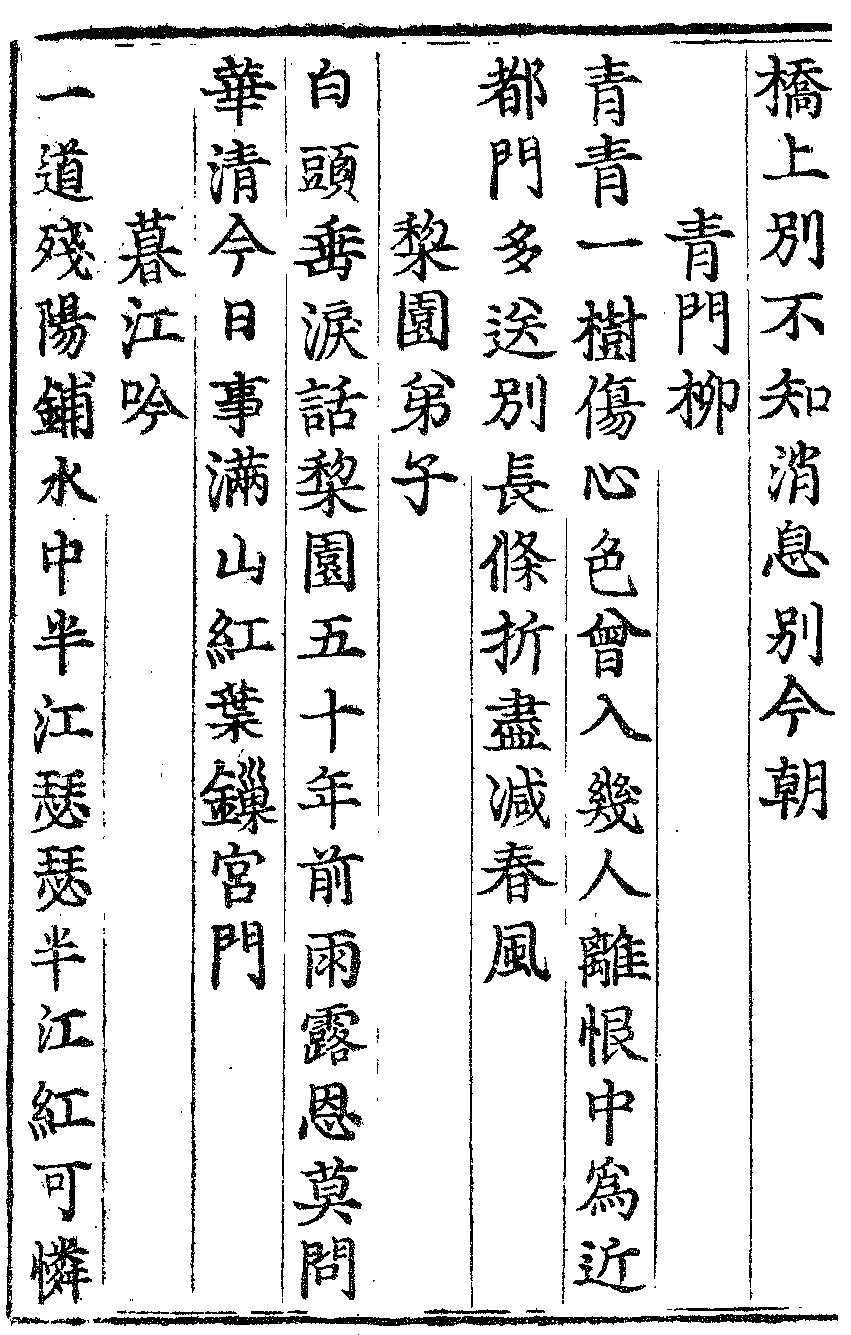 橋上別不知消息別今朝
青門柳
青青一樹傷心色曾入幾人離恨中爲近
都門多送別長條折盡減春風
棃園弟子
白頭垂淚話棃園五十年前雨露恩莫問
華清今日事滿山紅葉鏁宮門
暮江吟
一道殘陽鋪水中半江瑟瑟半江紅可憐